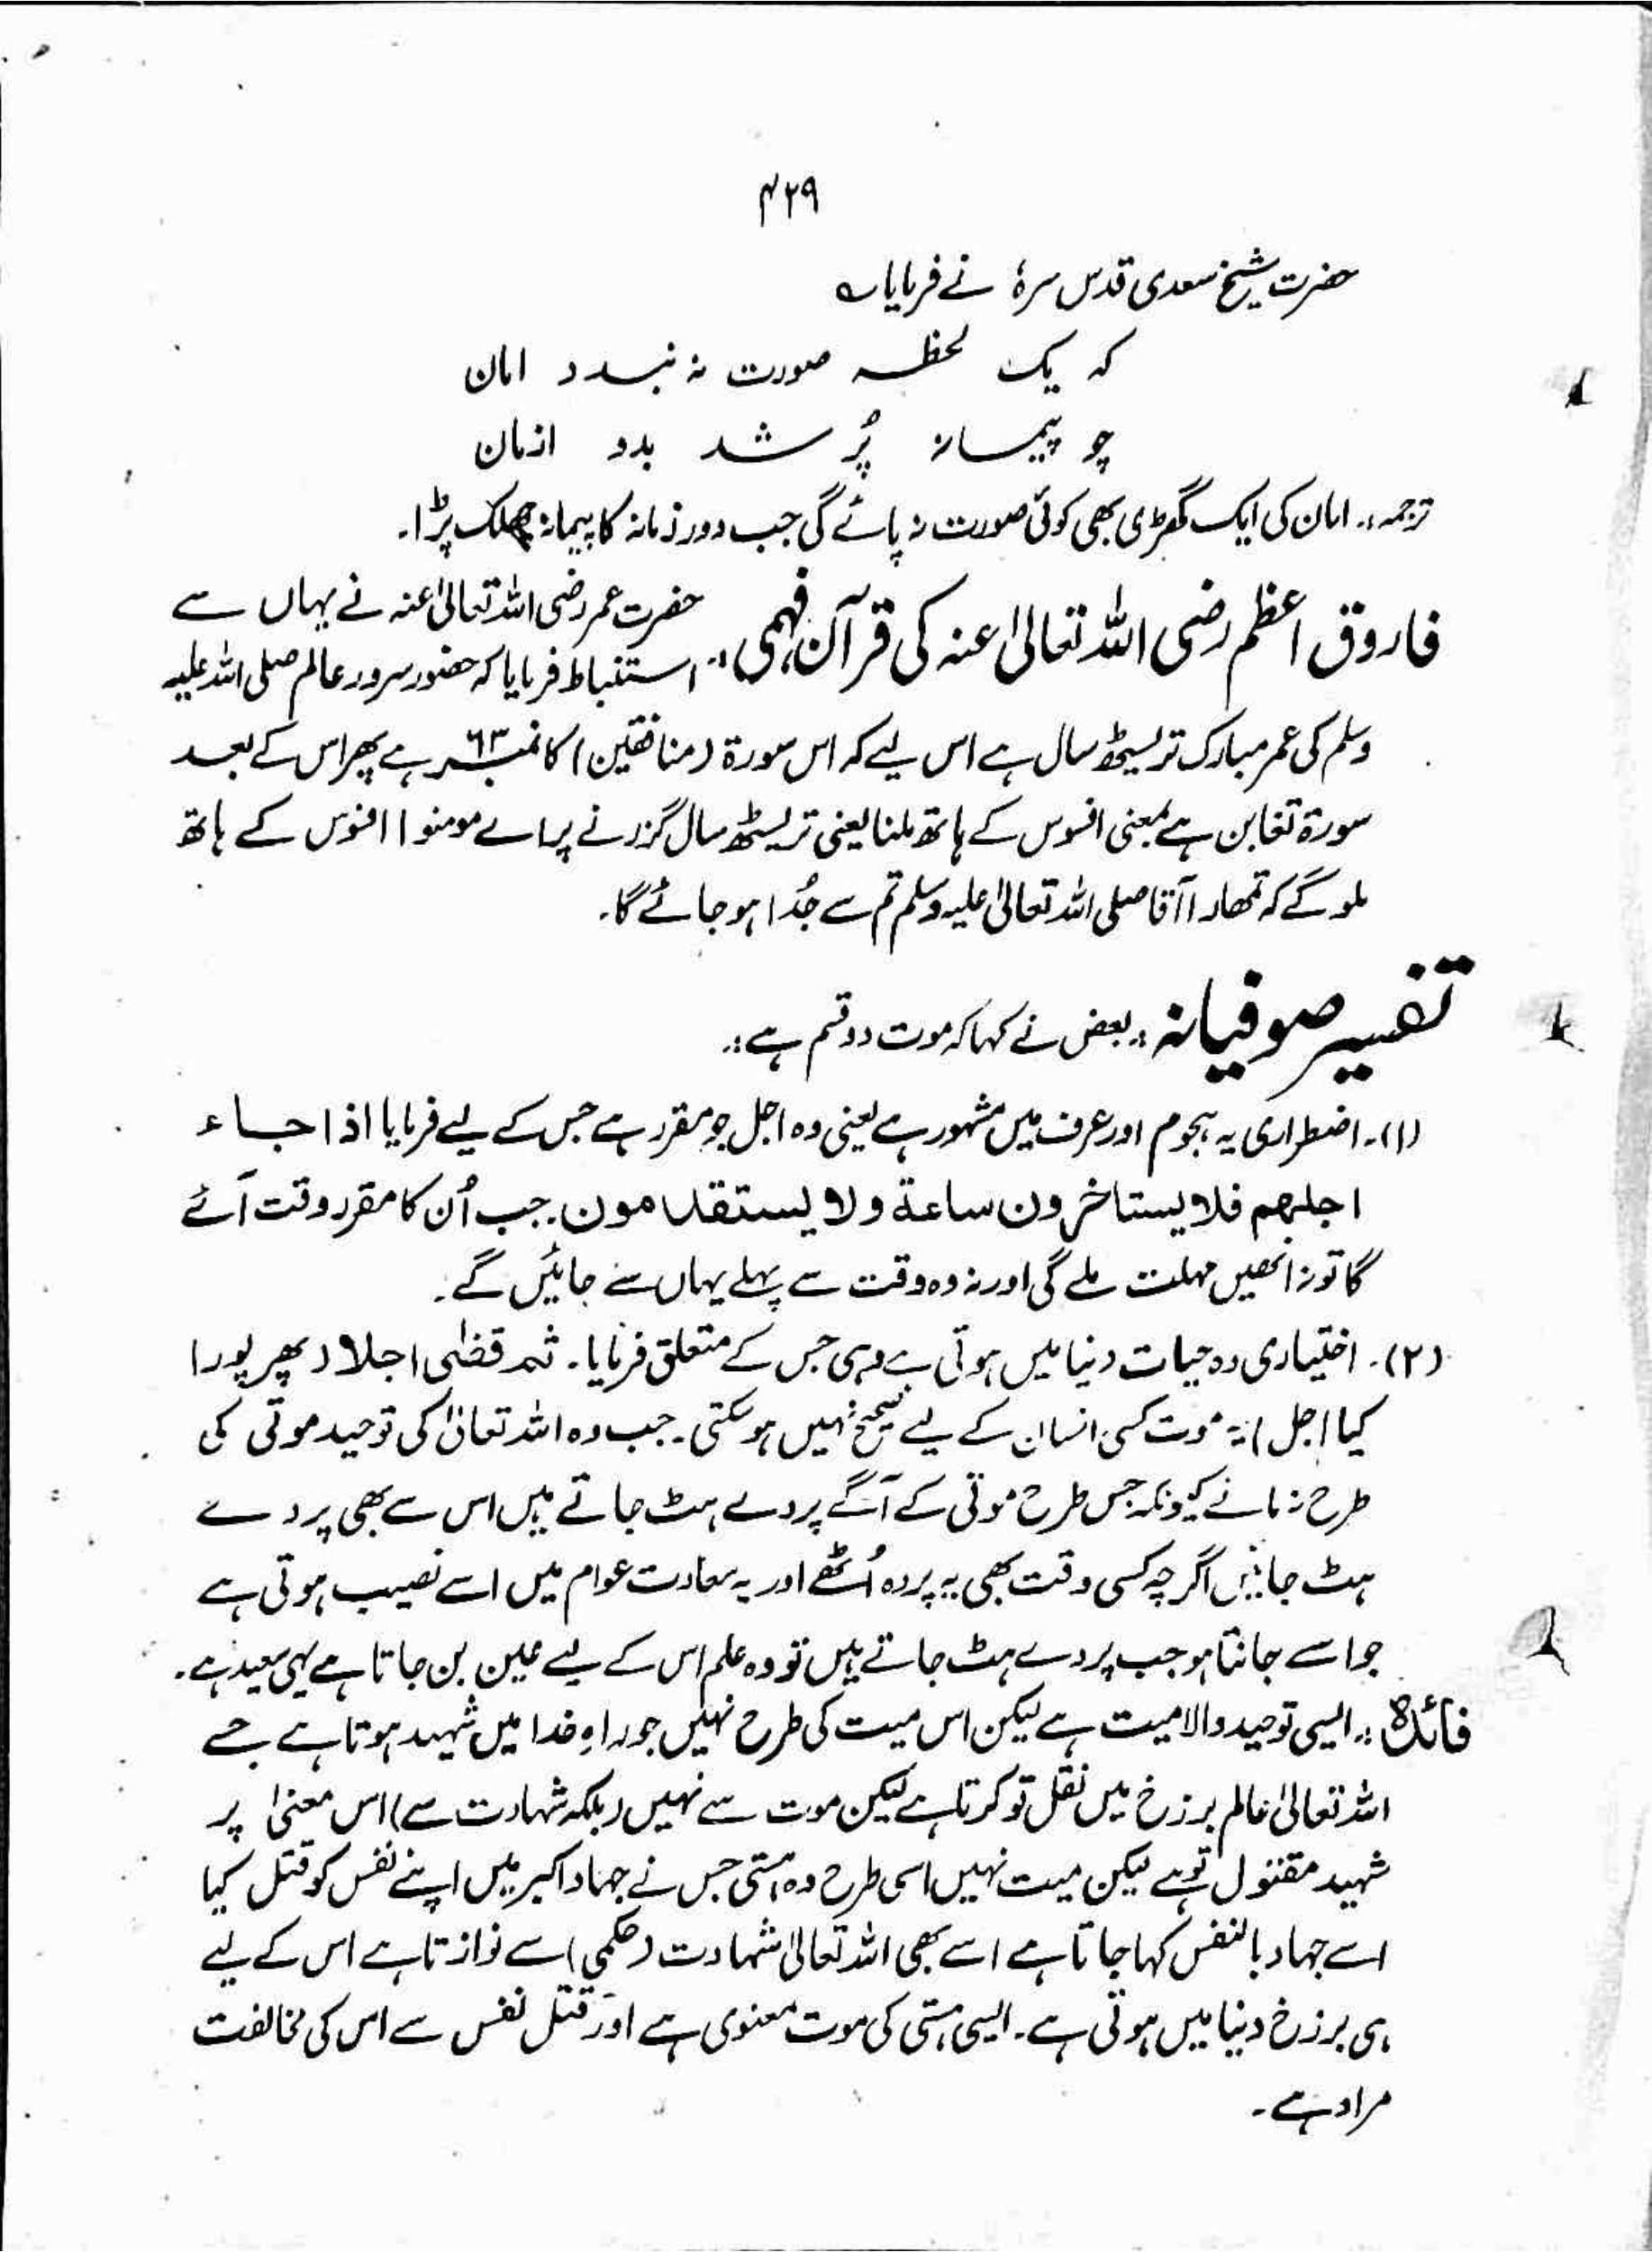 ۴۲۹
حضرت شیخ سعدی قدس سرہٗ نے فرمایا ؎
کہ یک لحظہ صورت نہ بندد امان
چو پیمانہ پُر شد بدو ازمان
ترجمہ:۔ امان کی ایک گھڑی بھی کوئی صورت نہ پائے گی جب دور زمانہ کا پیمانہ چھلک پڑا۔
فاروق اعظم رضی اللہ تعالیٰ عنہ کی قرآن فہمی:۔ حضرت عمر رضی اللہ تعالیٰ عنہ نے یہاں سے
استنباط فرمایا کہ حضور سرور عالم صلی اللہ علیہ
وسلم کی عمر مبارک تریسٹھ سال ہے اس لیے کہ اس سورۃ (منافقین) کا نمبر ۶۳ ہے پھر اس کے بعد
سورۃ تغابن ہے بمعنی افسوس کے ہاتھ ملنا یعنی تریسٹھ سال گزرنے پر اے مومنو! افسوس کے ہاتھ
ملو گے کہ تمھارا آقا صلی اللہ تعالیٰ علیہ وسلم تم سے جُدا ہو جائے گا۔
تفسیر صوفیانہ:۔ بعض نے کہا کہ موت دو قسم ہے:۔
(۱)۔ اضطراری یہ ہجوم اور عرف میں مشہور ہے یعنی وہ اجل جو مقرر ہے جس کے لیے فرمایا اذا جاء
اجلہم فلا یستاخرون ساعة ولا یستقدمون۔ جب اُن کا مقرر وقت آئے
گا تو نہ انھیں مہلت ملے گی اور نہ وہ وقت سے پہلے یہاں سے جائیں گے۔
(۲)۔ اختیاری وہ حیات دنیا میں ہوتی ہے وہی جس کے متعلق فرمایا۔ ثم قضٰی اجلا (پھر پورا
کیا اجل) یہ موت کسی انسان کے لیے صحیح نہیں ہو سکتی۔ جب وہ اللہ تعالیٰ کی توحید موتی کی
طرح نہ مانے کیونکہ جس طرح موتی کے آگے پردے ہٹ جاتے ہیں اس سے بھی پردے
ہٹ جائیں اگرچہ کسی وقت بھی یہ پردہ اُٹھے اور یہ سعادت عوام میں اسے نصیب ہوتی ہے
جو اسے جانتا ہو جب پردے ہٹ جاتے ہیں تو وہ علم اس کے لیے عین بن جاتا ہے یہی سعید ہے۔
فائدہ:۔ ایسی توحید والا میت ہے لیکن اس میت کی طرح نہیں جو راہِ خدا میں شہید ہوتا ہے جسے
اللہ تعالیٰ عالم برزخ میں نقل تو کرتا ہے لیکن موت سے نہیں (بلکہ شہادت سے) اس معنیٰ پر
شہید مقتول تو ہے لیکن میت نہیں اسی طرح وہ ہستی جس نے جہاد اکبر میں اپنے نفس کو قتل کیا
اسے جہاد بالنفس کہا جاتا ہے اسے بھی اللہ تعالیٰ شہادت (حکمی) سے نوازتا ہے اس کے لیے
ہی برزخ دنیا میں ہوتی ہے۔ ایسی ہستی کی موت معنوی ہے اور قتل نفس سے اس کی مخالفت
مراد ہے۔